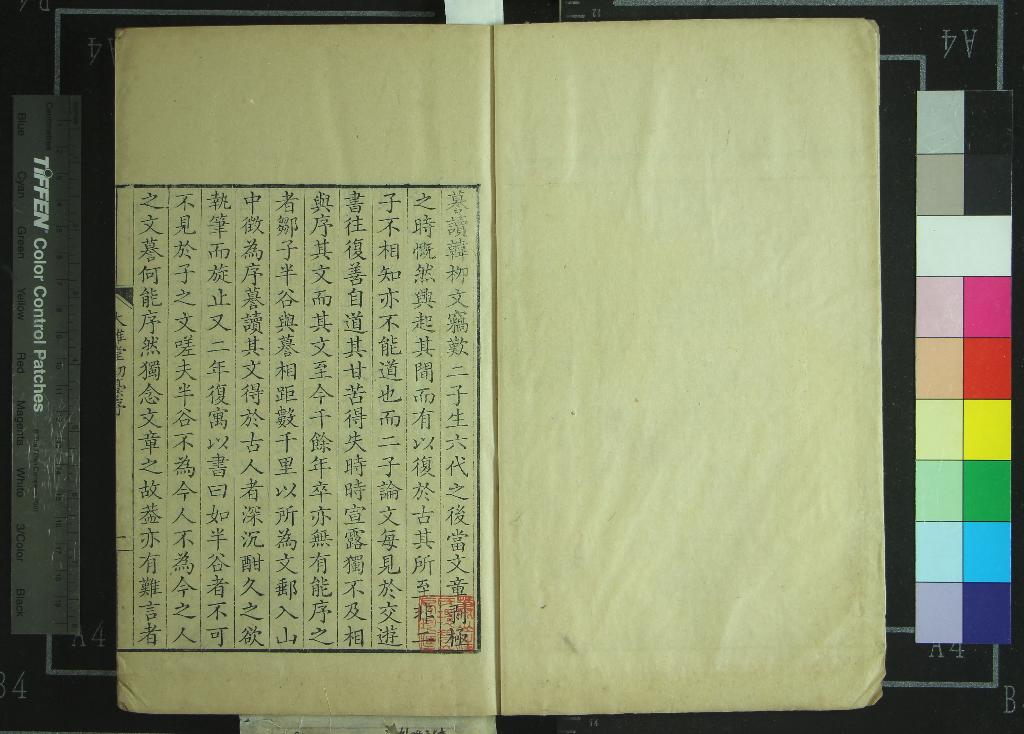 蓦讀韓柳文竊歎二子生六代之後當文章弊極
之時慨然興起其間而有以復於古其所至非二
子不相知亦不能道也而二子論文每見於交遊
書往復善自道其甘苦得失時時宣露獨不及相
與序其文而其文至今千餘年卒亦無有能序之
者鄒子半谷與蓦相距數千里以所為文郵入山
中徵為序蓦讀其文得於古人者深沉酣久之欲
執筆而旋止又二年復寓以書曰如半谷者不可
不見於子之文嗟夫半谷不為今人不為今之人
之文蓦何能序然獨念文章之故葢亦有難言者
大雅堂初稾序
一
TIFFEN Color Control Patches
Blue
Cyan
Green
Yellow
Red
Magenta
White
3/Color
Black
Centimetres
A4
A4
A4
A4
B4